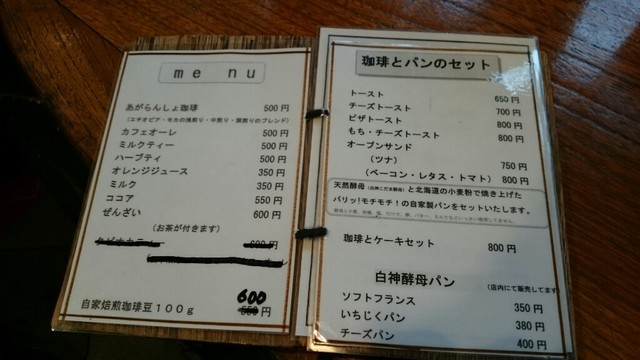 menu
あがらんしょ珈琲 500円
カフェオーレ 500円
ミルクティー 500円
ハーブティ 500円
オレンジジュース 350円
ミルク 350円
ココア 550円
ぜんざい 600円
(お茶が付きます)
600
自家焙煎珈琲豆100g 550円
珈琲とパンのセット
トースト 650円
チーズトースト 700円
ピザトースト 800円
もち・チーズトースト 800円
オープンサンド
(ツナ) 750円
(ベーコン・レタス・トマト) 800円
天然酵母(白神こだま酵母)と北海道の小麦粉で焼き上げた
パリッ!モチモチ!の自家製パンをセットいたします。
珈琲とケーキセット 800円
白神酵母パン (店内にて販売してます
ソフトフランス 350円
いちじくパン 380円
チーズパン 400円